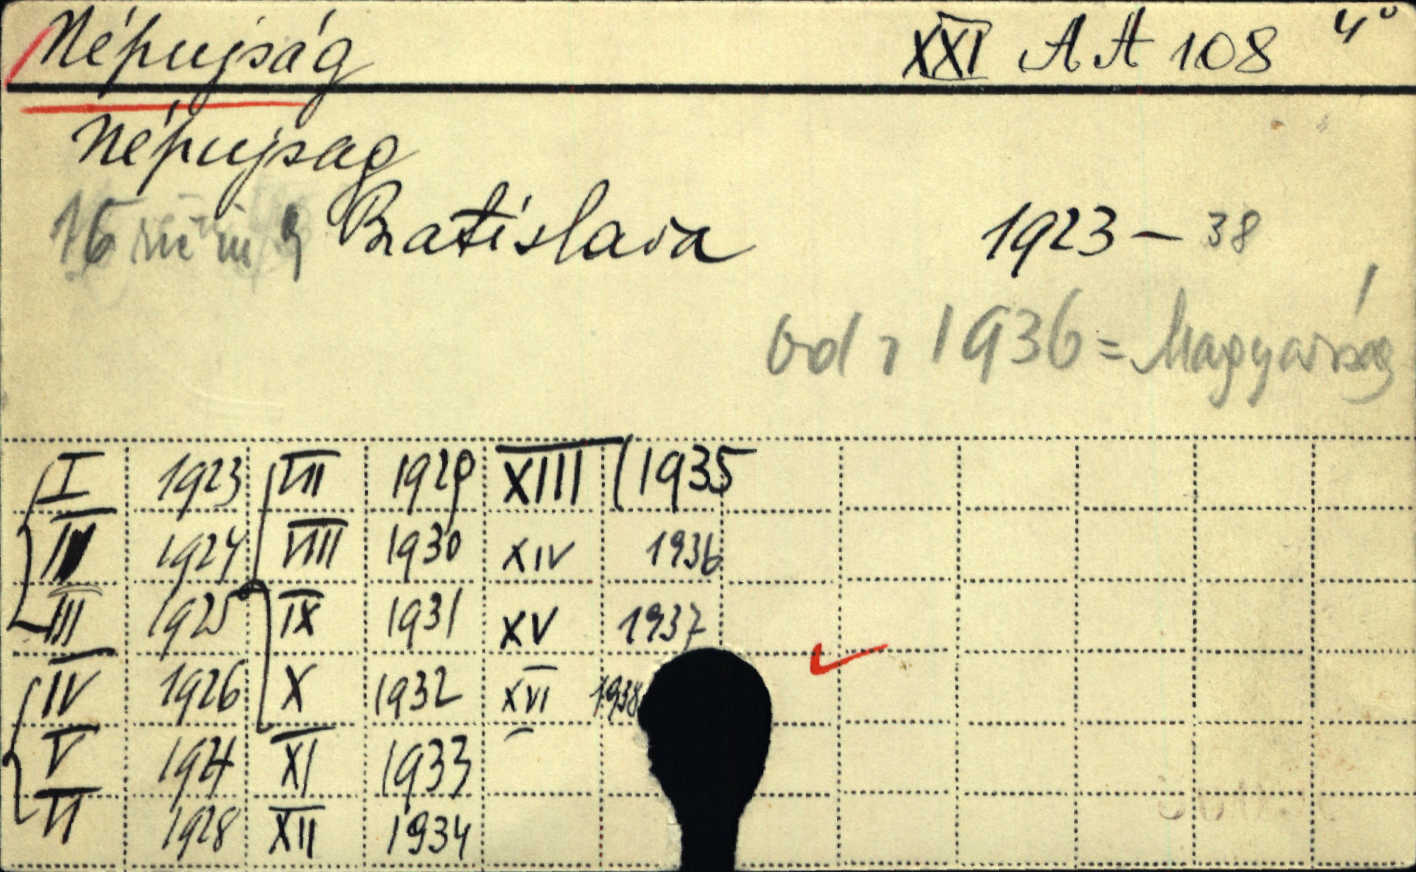 Népujság XXI AA 108 4°
Népujsag
Bratislava 1923 – 38
od r 1936 = Magyarság
I 1923 VII 1929 XIII 1935
II 1924 VIII 1930 XIV 1936
III 1925 IX 1931 XV 1937
IV 1926 X 1932 XVI 1938
V 1927 XI 1933
VI 1928 XII 1934